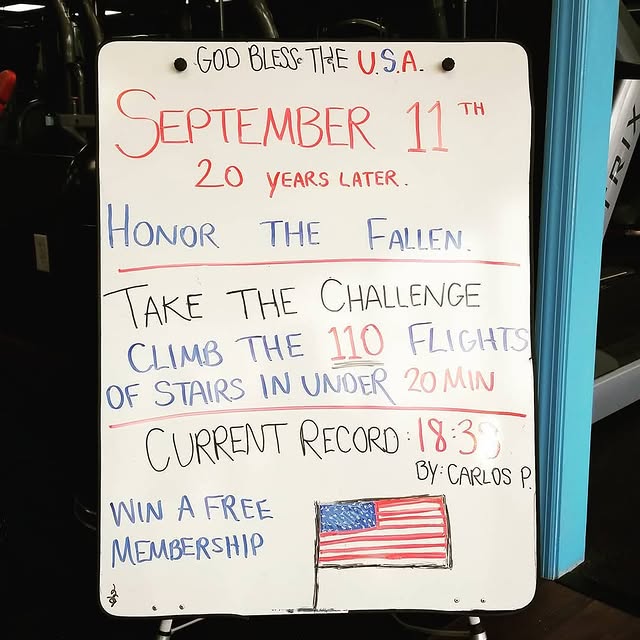 GOD BLESS THE U.S.A.
SEPTEMBER 11TH
20 YEARS LATER.
HONOR THE FALLEN.
TAKE THE CHALLENGE
CLIMB THE 110 FLIGHTS
OF STAIRS IN UNDER 20 MIN
CURRENT RECORD: 18:38
BY: CARLOS P.
WIN A FREE
MEMBERSHIP
TRIX